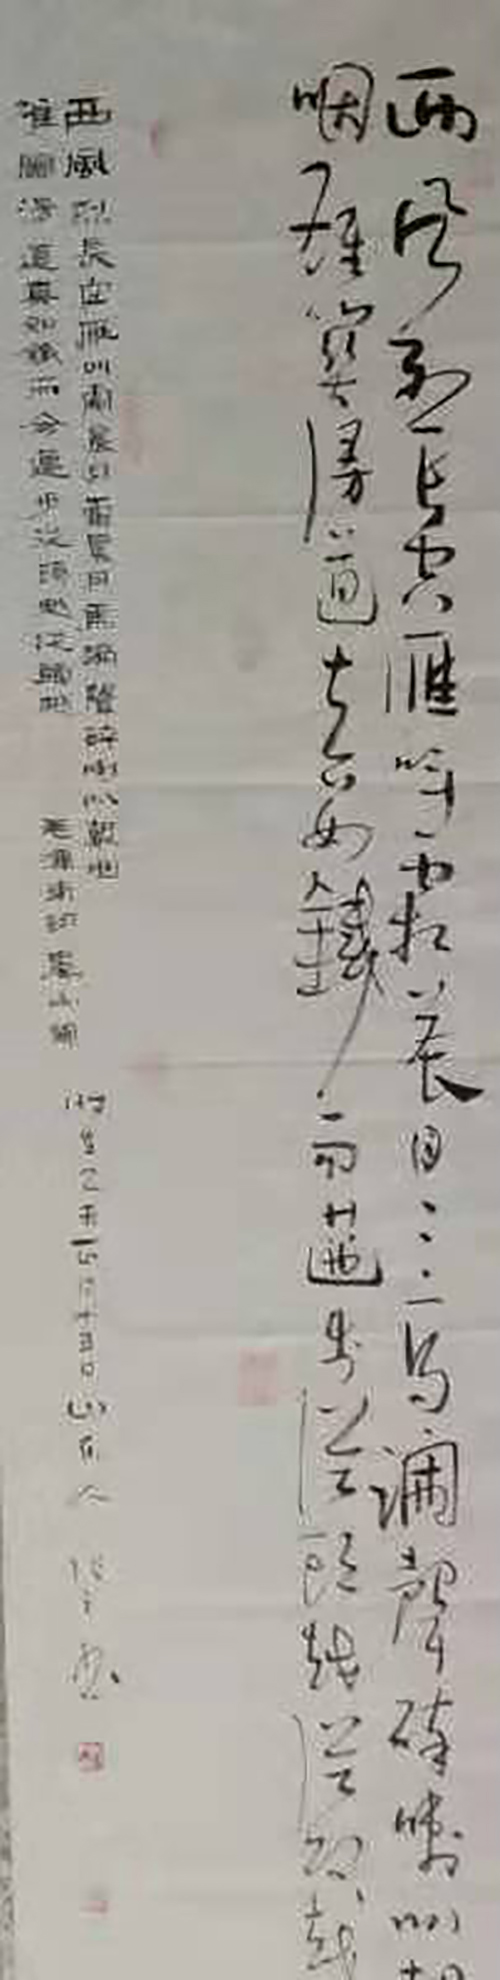 西風烈長空雁叫霜晨月馬蹄聲碎喇叭
咽雄關漫道真如鐵而邁步從頭越從頭越
西風烈長空雁叫霜晨月霜晨月馬蹄聲碎喇叭聲咽
雄關漫道真如鐵而今邁步從頭越從頭越
毛澤東詞婁山關
乙未月十五日山東人